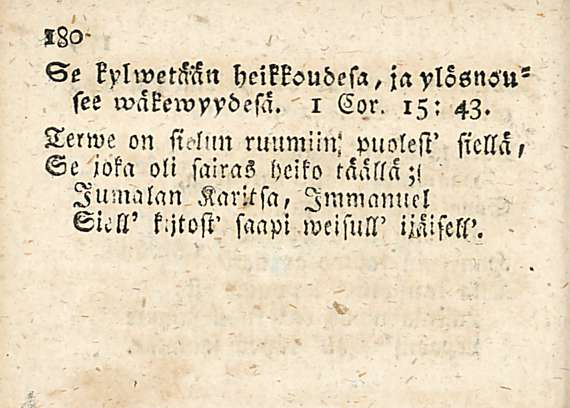 180
Se kylwetään heikkoudesa, ja ylösnou⸗
see wäkewyydesä. 1 Cor. 15: 43.
Terwe on sielun ruumiin, puolest' siellä,
Se joka oli sairas heiko täällä;
Jumalan Karitsa, Immanuel
Siell' kijtost' saapi weisull' ijäisell'.